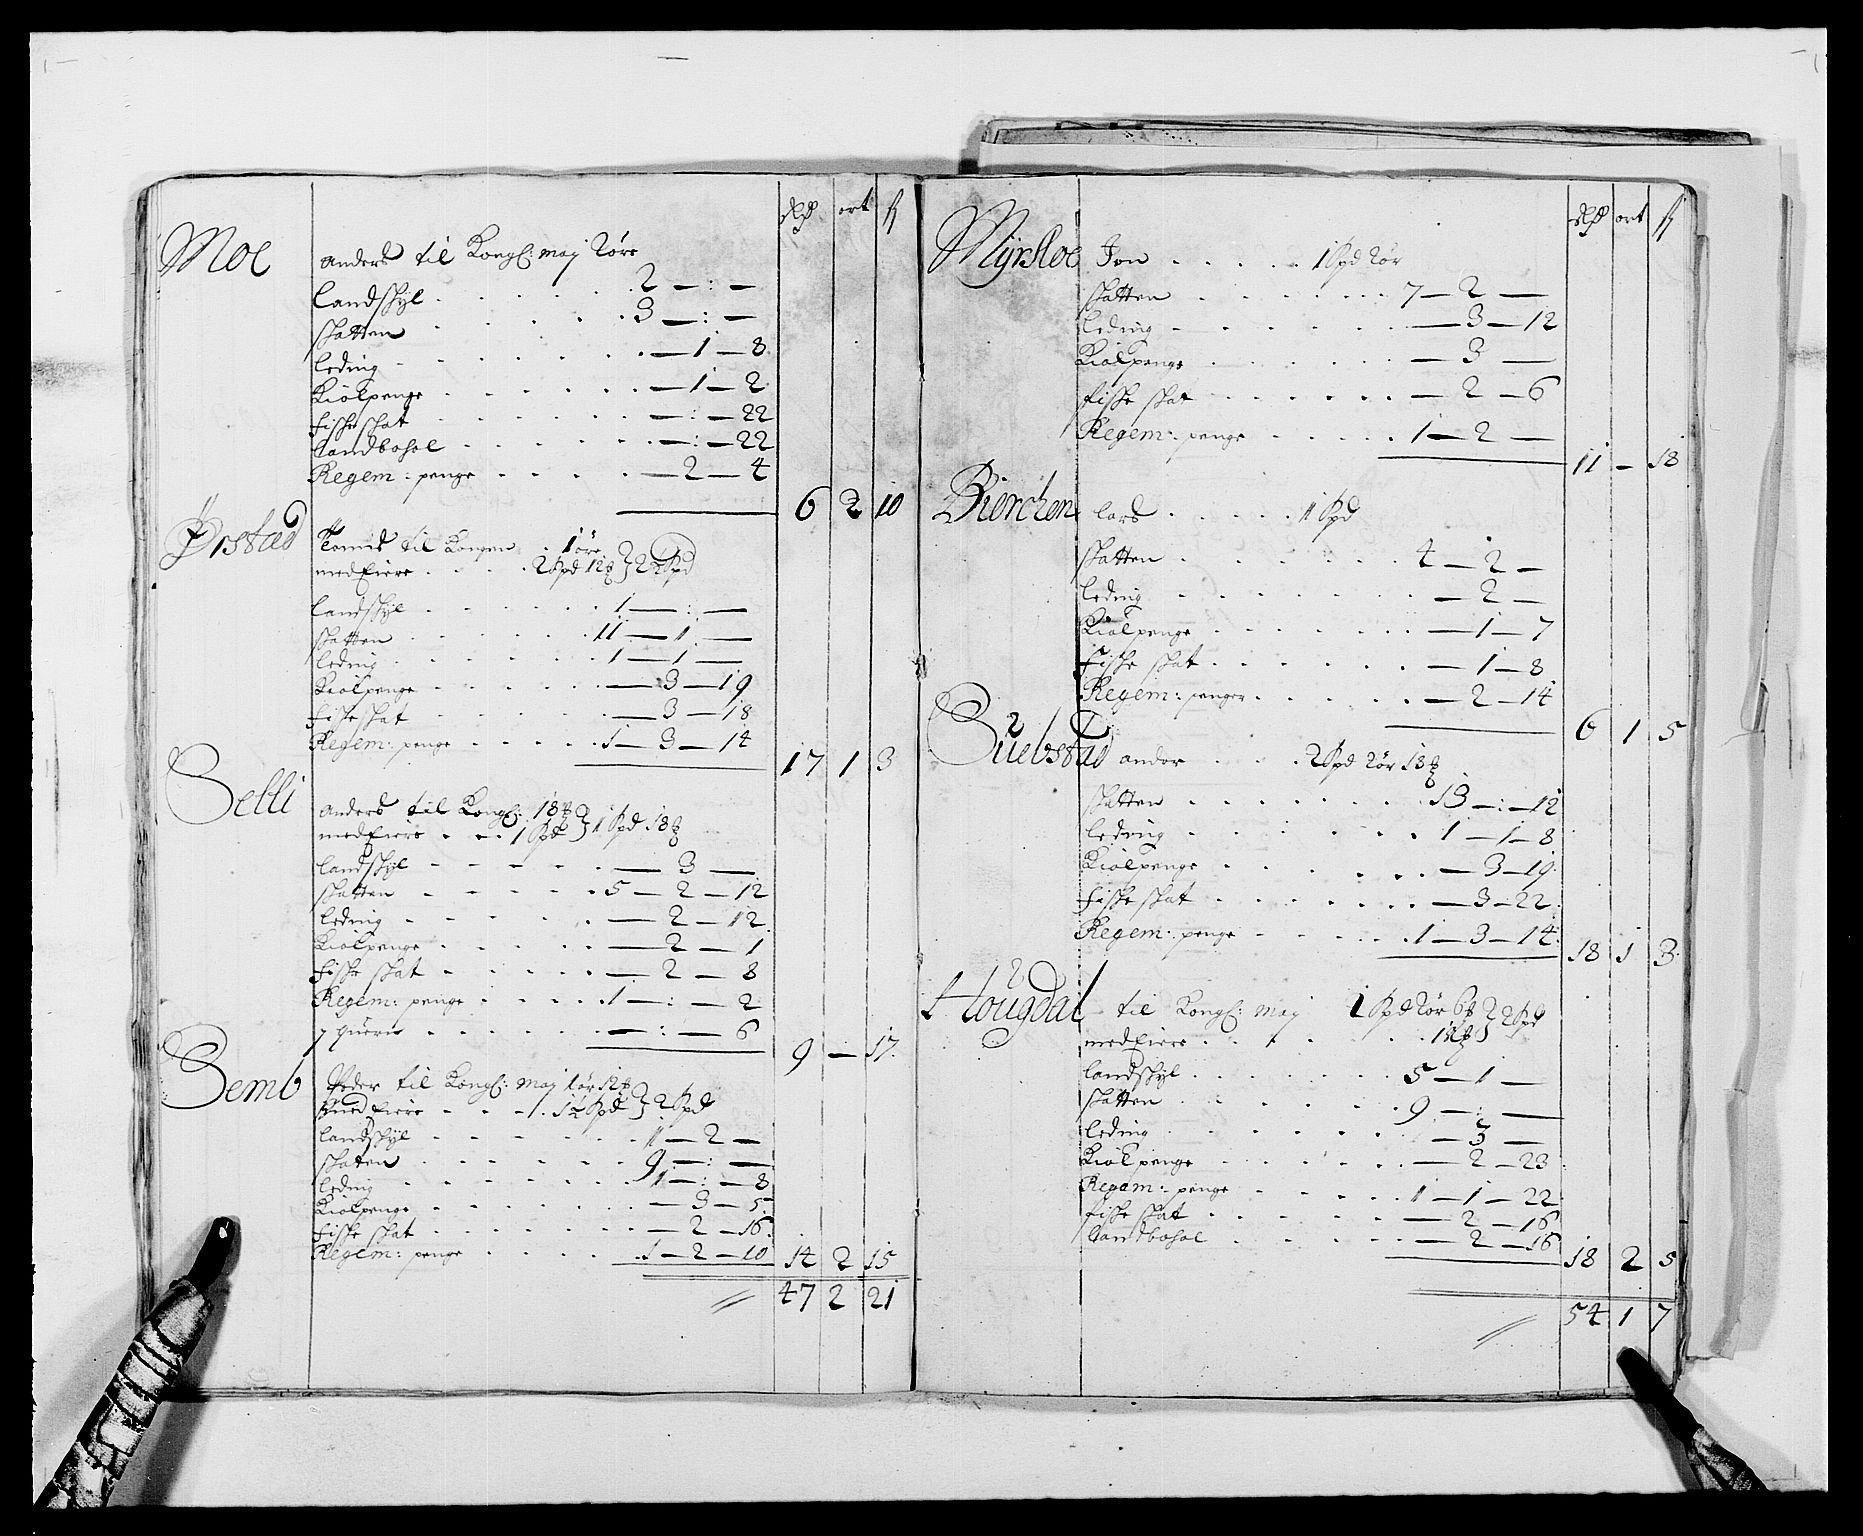 rdl ort ß
Moe
Anders til Kongl: May 2øre
Landskyl . . . . . 2 — : —
skatten . . . . . 3 — : —
leding . . . . . — 1 — 8
Kiølpenge . . . . . — 1 — 2
fiske skat . . . . . — : — 22
Landbohol . . . . . — : — 22
Regem: penge . . . . — 2 — 4
6 2 10
Ørstad
til Kongen . 1øre
medEiere . . . . 2 Spd 12 } 2½ Spd
landskyl . . . . . 1 — : —
skatten . . . . . 11 — 1 —
leding . . . . . 1 — 1 —
Kiølpenge . . . . . — 3 — 19
fiske skat . . . . . — 3 — 18
Regem: penge . . . . . 1 — 3 — 14
17 1 3
Selli
Anders til Kongl: 18
medEiere . . . 1 Spd } 1 Spd 18
landskyl . . . . . — 3 —
skatten . . . . . 5 — 2 — 12
leding . . . . . — 2 — 12
Kiølpenge . . . . . — 2 — 1
fiske skat . . . . . — 2 — 8
Regem: penge . . . . 1 — : — 2
7 quern . . . . . — : — 6
9 — 17
Semb
Peder til Kongl: may 1ør 12
medEiere . . . 1½ Spd } 2 Spd
landskyl . . . . . 1 — 2 —
skatten . . . . . 9 — : —
leding . . . . . 1 — : — 8
Kiølpenge . . . . . — 3 — 5
fiske skat . . . . . — 2 — 16
Regem: penge . . . . . 1 — 2 — 10 14 2 15
47 2 21
rdl ort ß
Myrsloe Jon . . . . . 1 Spd 2ør
skatten . . . . . 7 — 2 —
leding . . . . . — 3 — 12
Kiølpenge . . . . . — 3 —
fiske skat . . . . . — 2 — 6
Regem: penge . . . . . 1 — 2 —
11 — 18
Bierchen Lars . . . . . 1 Spd
skatten . . . . . 4 — 2 —
leding . . . . . — 2 —
Kiølpenge . . . . . — 1 — 7
fiske skat . . . . . — 1 — 8
Regem: penger . . . . . — 2 — 14
6 1 5
Suebstad andor . . . . 2 Spd 2ør 18
skatten . . . . . 13 — : — 12
leding . . . . . 1 — 1 — 8
Kiølpenge . . . . . — 3 — 19
fiske skat . . . . . — 3 — 22
Regem: penge . . . . . 1 — 3 — 14
18 1 3
Hougdal til Kongl: May 1 Spd 2ør 6 } 2 Spd
medEiere . . . . . 18
landskyl . . . . . 5 — 1 —
skatten . . . . . 9 — : —
leding . . . . . — 3 —
Kiølpenge . . . . . — 2 — 23
Regem: penge . . . . . 1 — 1 — 22
fiske skat . . . . . — 2 — 16
Landbohol . . . . . — 2 — 16
18 2 5
54 1 7